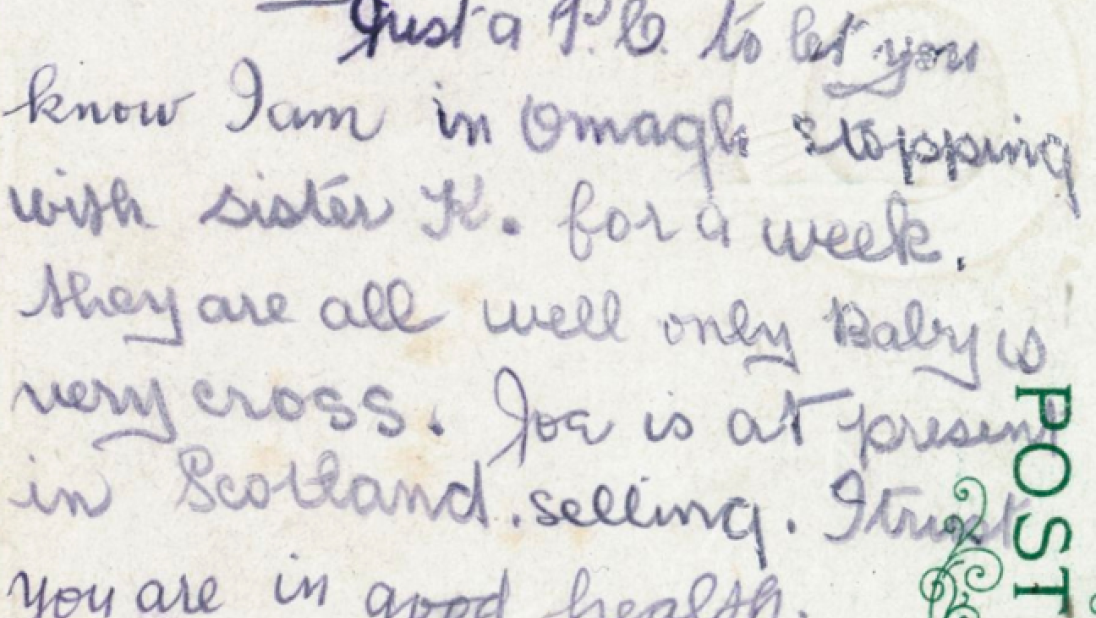 Just a P.C. to let you
know I am in Omagh stopping
with sister K. for a week.
they are all well only Baby is
very cross. Joe is at present
in Scotland. selling. I trust
you are in good health.
POST